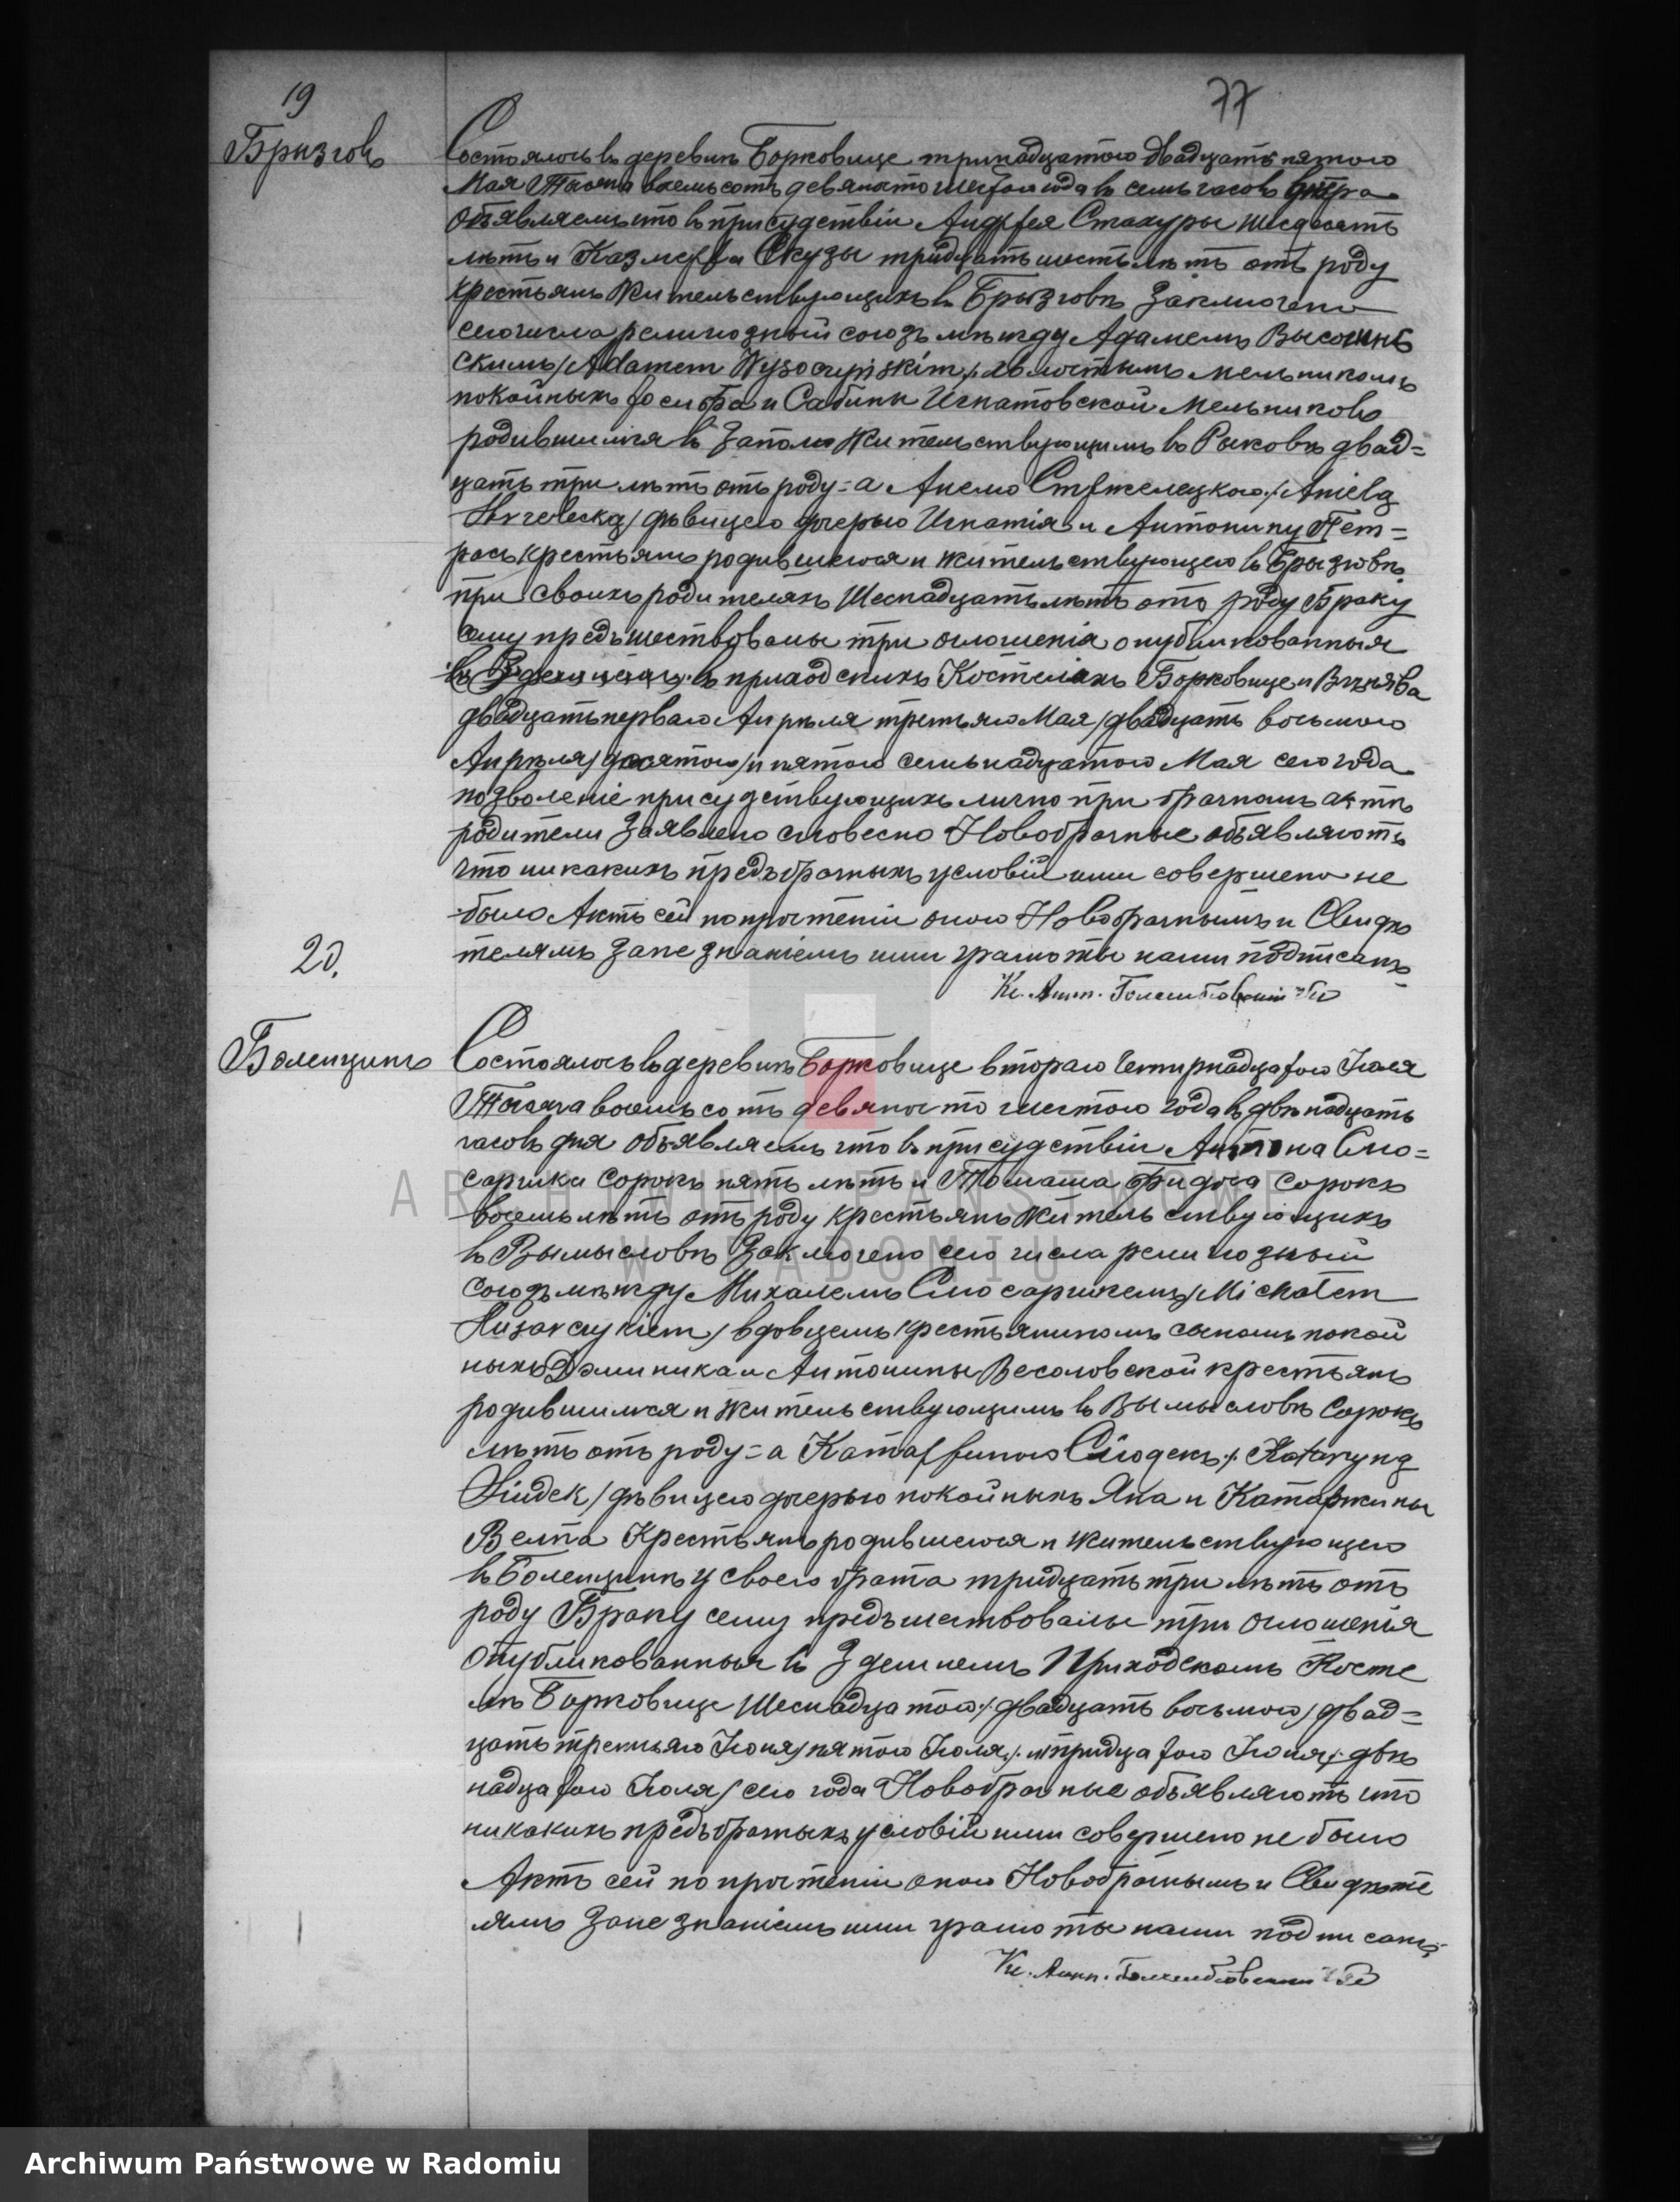 77
19
Брызговъ
Состоялось въ деревнѣ Борковице тринадцатого двадцать пятого
Мая Тысяча восемьсотъ девяносто шестого года въ семь часовъ утра
Объявляемъ что въ присудствіи Андрея Стахуры шесдесять
лѣтъ и Казмера Скузы тридцать шесть лѣтъ отъ роду
крестьянъ жительствующихъ въ Брызговѣ Заключено
сего числа религіозный союзъ между Адамемъ Высочинь
скимъ /Adamem Wysoczyńskim/ холостымъ мельникомъ
покойныхъ Іосифа и Сабины Игнатовской Мельниковъ
родившимся въ жительствующимъ въ Рыковѣ двад=
цать три лѣтъ отъ роду = а Анелю Стржелецкого /Anielą
Strzelecką/ дѣвицею дочерью Игнатія и Антонину Пет=
расъ крестьянъ родившеюся и жительствующею въ Брызговѣ
при своихъ родителяхъ Шеснадцать лѣтъ отъ роду Браку
сему предъшествовалы три оглошенія опубликованныя
въ приходскихъ Костелахъ Борковице и Вѣнява
двадцать перваго Апрѣля третьяго Мая /двадцать восьмого
Апрѣля/ десятого /и пятого семьнадцатого Мая сего года
позволеніе присудствующихъ лично при брачномъ актѣ
родители Заявлено словесно Новобрачные объявляютъ
что никакихъ предъбрачныхъ условій ими совершено не
было Актъ сей по прочтеніи оного Новобрачнымъ и Свидѣ
телямъ Зане знаніемъ ими грамоты нами подписанъ
Кс. Ант.
20.
Боленцинъ
Состоялось въ деревнѣ Борковице втораго Четырнадцатого Іюля
Тысяча восемьсотъ девяносто шестого года въ двѣнадцать
часовъ дня Объявляемъ что въ присудствіи Антона Слю=
сарчика сорокъ пять лѣтъ и Томаша сорокъ
восемь лѣтъ отъ роду крестьянъ жительствующихъ
въ Вымысловѣ Заключено сего числа религіозный
союзъ между Михалемъ Слюсарчикемъ /Michałem
Ślusarczykiem/ вдовцемъ крестьяниномъ сыномъ покой
ныхъ Доминика и Антонины Весоловской крестьянъ
родившимся и жительствующимъ въ Вымысловѣ Сорокъ
лѣтъ отъ роду = а Катаржиною Сіюдекъ /Katarzyną
Siudek/ дѣвицею дочерью покойныхъ Яна и Катаржины
Велта Крестьянъ родившеюся и жительствующею
въ Боленцинѣ у своего брата тридцать три лѣтъ отъ
роду Браку сему предъшествовалы три оглошенія
Опубликованныя въ Здешнемъ Приходскомъ Косте
лѣ Борковице Шеснадцатого /двадцать восьмого/ двад=
цать третьяго Іюня /пятого Іюля/ и тридцатого Іюня /двѣ
надцатого Іюля/ сего года Новобрачные объявляютъ что
никакихъ предъбрачныхъ условій ими совершено не было
Актъ сей по прочтеніи оного Новобрачнымъ и Свидѣте
лямъ Зане знаніемъ ими грамоты нами подписанъ.
Кс. Ант.
ARCHIWUM PAŃSTWOWE
W RADOMIU
Archiwum Państwowe w Radomiu